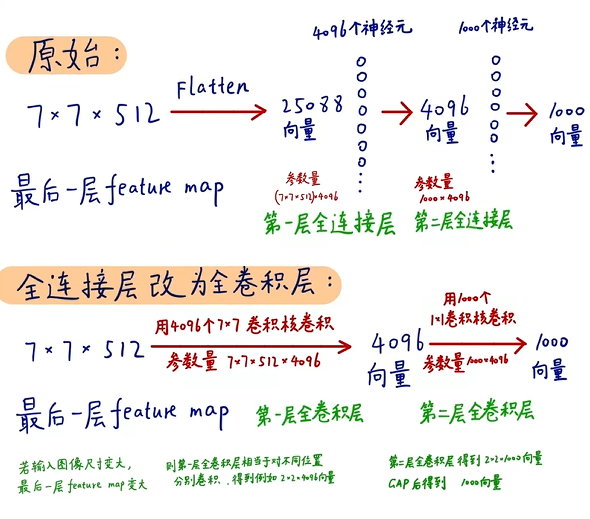 4096个神经元
1000个神经元
原始:
7×7×512
Flatten
25088
向量
4096
向量
1000
向量
最后一层feature map
参数量
(7×7×512)×4096
参数量
1000×4096
第一层全连接层
第二层全连接层
全连接层改为全卷积层:
用4096个7×7卷积核卷积
用1000个
1×1卷积核卷积
7×7×512
参数量 7×7×512×4096
4096
向量
参数量1000×4096
1000
向量
最后一层feature map
第一层全卷积层
第二层全卷积层
若输入图像尺寸变大,
最后一层feature map变大
则第一层全卷积层相当于对不同位置
分别卷积,得到例如2×2×4096向量
第二层全卷积层得到2×2×1000向量
GAP后得到 1000向量